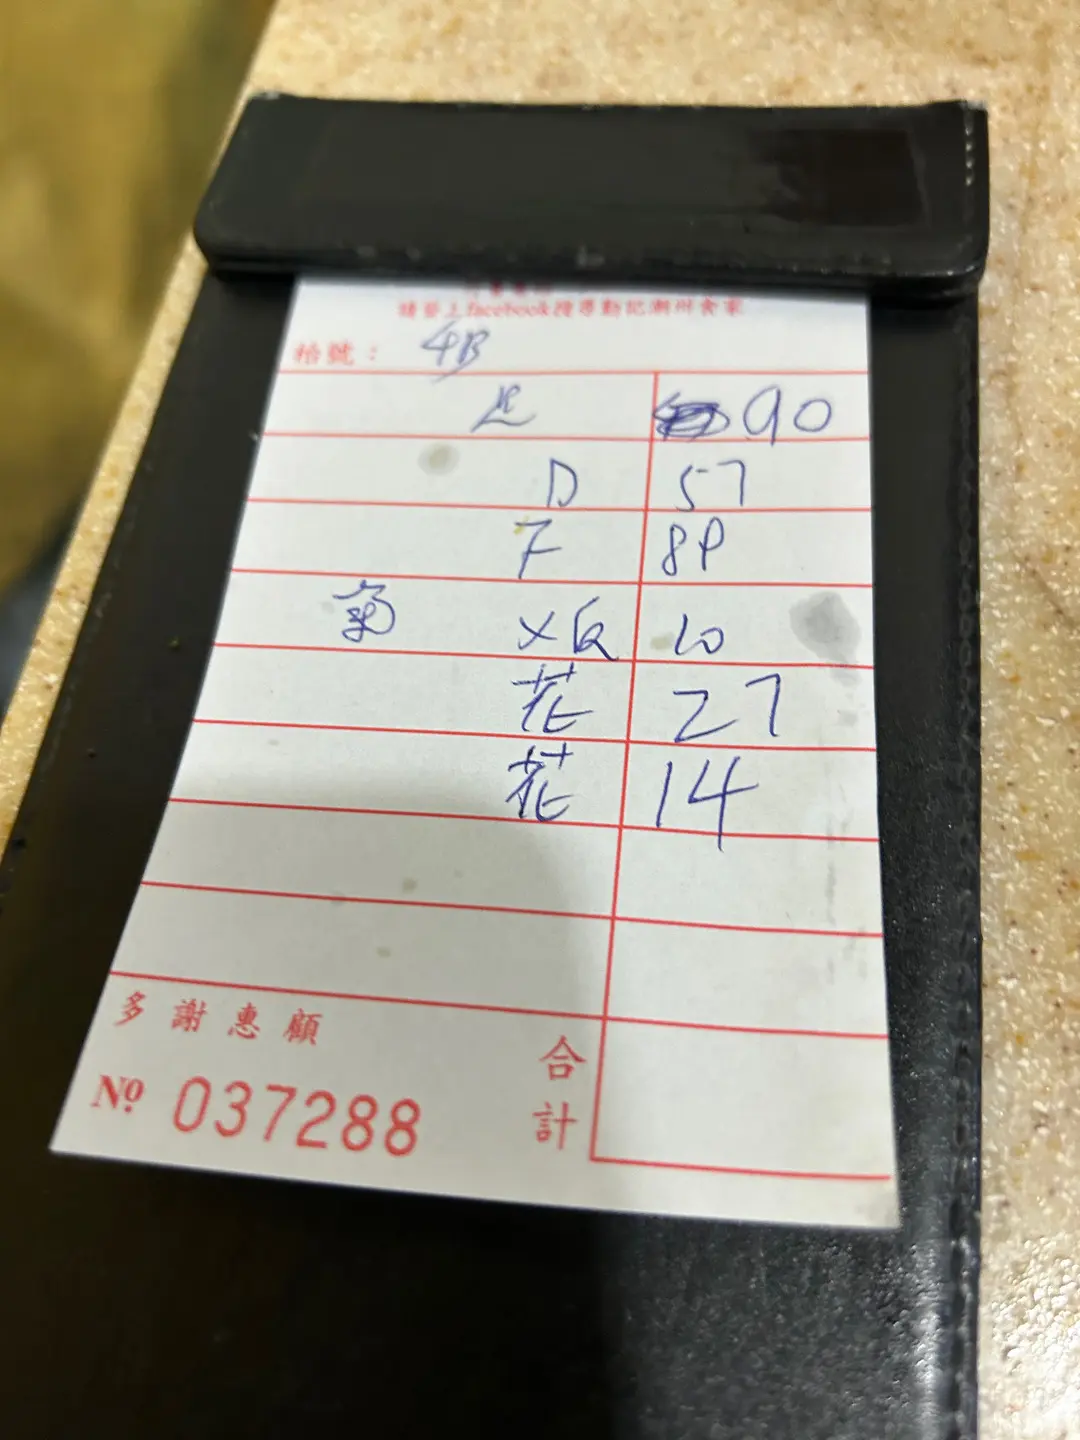 請登上facebook搜尋勤記潮州食家
枱號： 4B
90
D 57
F 8P
X 反 10
花 27
花 14
多謝惠顧
合計
Nº 037288